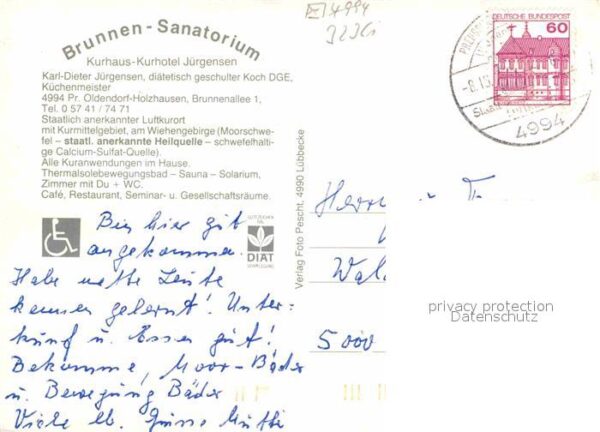 Brunnen-Sanatorium
Kurhaus-Kurhotel Jürgensen
Karl-Dieter Jürgensen, diätetisch geschulter Koch DGE,
Küchenmeister
4994 Pr. Oldendorf-Holzhausen, Brunnenallee 1,
Tel. 0 57 41 / 74 71
Staatlich anerkannter Luftkurort
mit Kurmittelgebiet, am Wiehengebirge (Moorschwe-
fel – staatl. anerkannte Heilquelle – schwefelhalti-
ge Calcium-Sulfat-Quelle).
Alle Kuranwendungen im Hause.
Thermalsolebewegungsbad – Sauna – Solarium,
Zimmer mit Du + WC.
Café, Restaurant, Seminar- u. Gesellschaftsräume.
DIÄT
Bin hier gut
angekommen.
Habe nette Leute
kennen gelernt! Unter-
kunf u. Essen gut!
Bekomme, Moor-Bäder
u. Bewegung Bäder
Viele lb. Mutti
Verlag Foto Pescht, 4990 Lübbecke
4994
DEUTSCHE BUNDESPOST
60
4994
Herrn
5000
privacy protection
Datenschutz